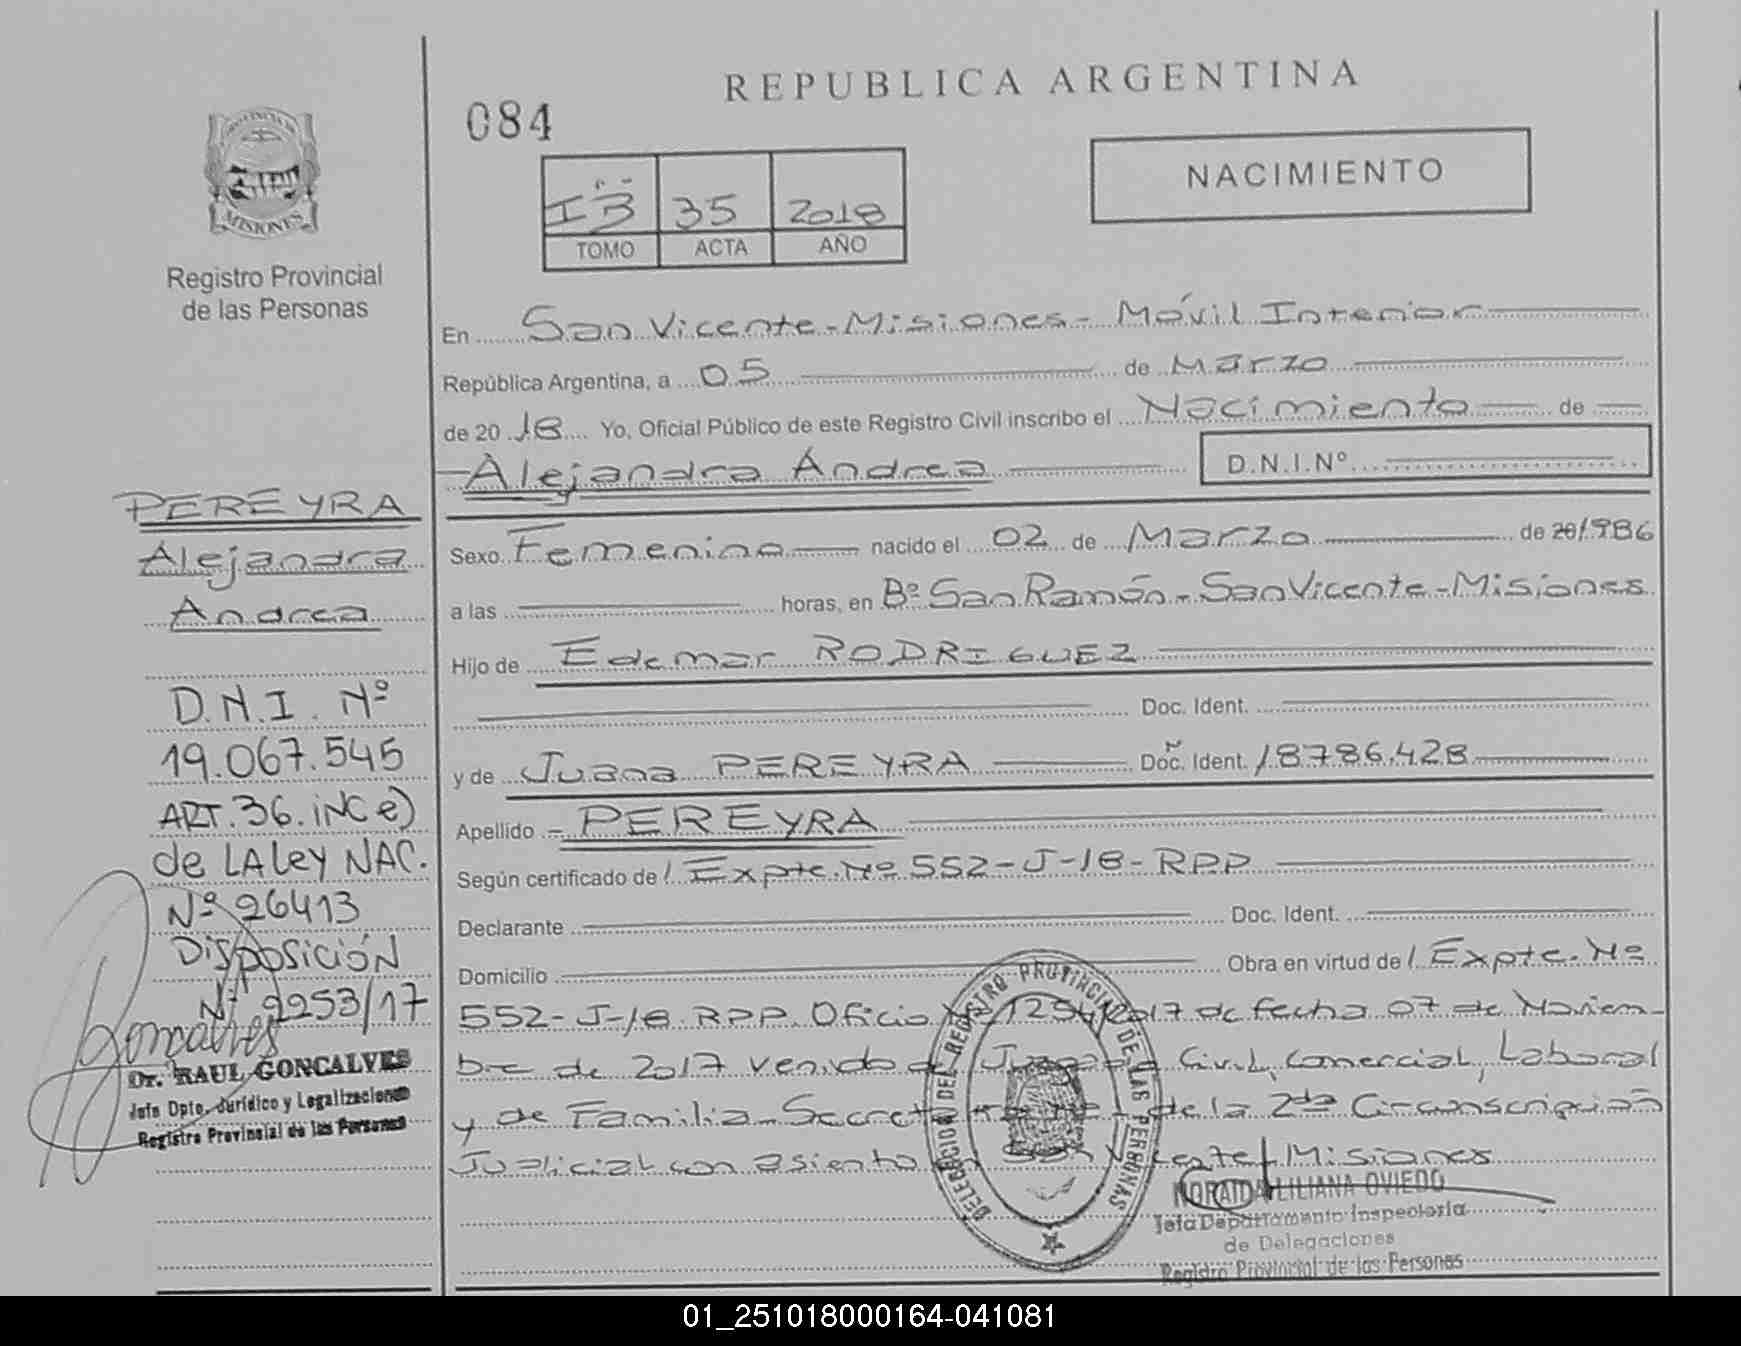 REPUBLICA ARGENTINA
084
NACIMIENTO
35 2018
TOMO ACTA AÑO
PROVINCIA DE
MISIONES
Registro Provincial
de las Personas
En San Vicente - Misiones - Móvil Interior
República Argentina, a 05 de Marzo
de 2018 Yo, Oficial Público de este Registro Civil inscribo el Nacimiento de
Alejandra Andrea D.N.I.Nº
Sexo Femenino nacido el 02 de Marzo de 20/986
a las horas, en Bº San Ramón - San Vicente - Misiones
Hijo de Edemar RODRIGUEZ
Doc. Ident.
y de Juana PEREYRA Doc. Ident. 18786.428
Apellido - PEREYRA
Según certificado de / Expte. Nº 552-J-18-RPP
Declarante Doc. Ident.
Domicilio Obra en virtud de / Expte. Nº
552-J-18 RPP. Oficio 1254/2017 de fecha 07 de Noviem-
bre de 2017 venido Civil, Comercial, Laboral
y de Familia - de la 2da Circunscripción
Judicial con asiento Misiones
PEREYRA
Alejandra
Andrea
D.N.I. Nº
19.067.545
ART. 36. iNC e)
de LA ley NAC.
Nº 26413
Disposición
Nº 2253/17
Goncalves
Dr. RAUL GONCALVES
Jefe Dpto. Jurídico y Legalizaciones
Registro Provincial de las Personas
DELEGACION DEL REGISTRO PROVINCIAL DE LAS PERSONAS
NORAIDA LILIANA OVIEDO
Jefa Departamento Inspectoria
de Delegaciones
Registro Provincial de las Personas
01_251018000164-041081